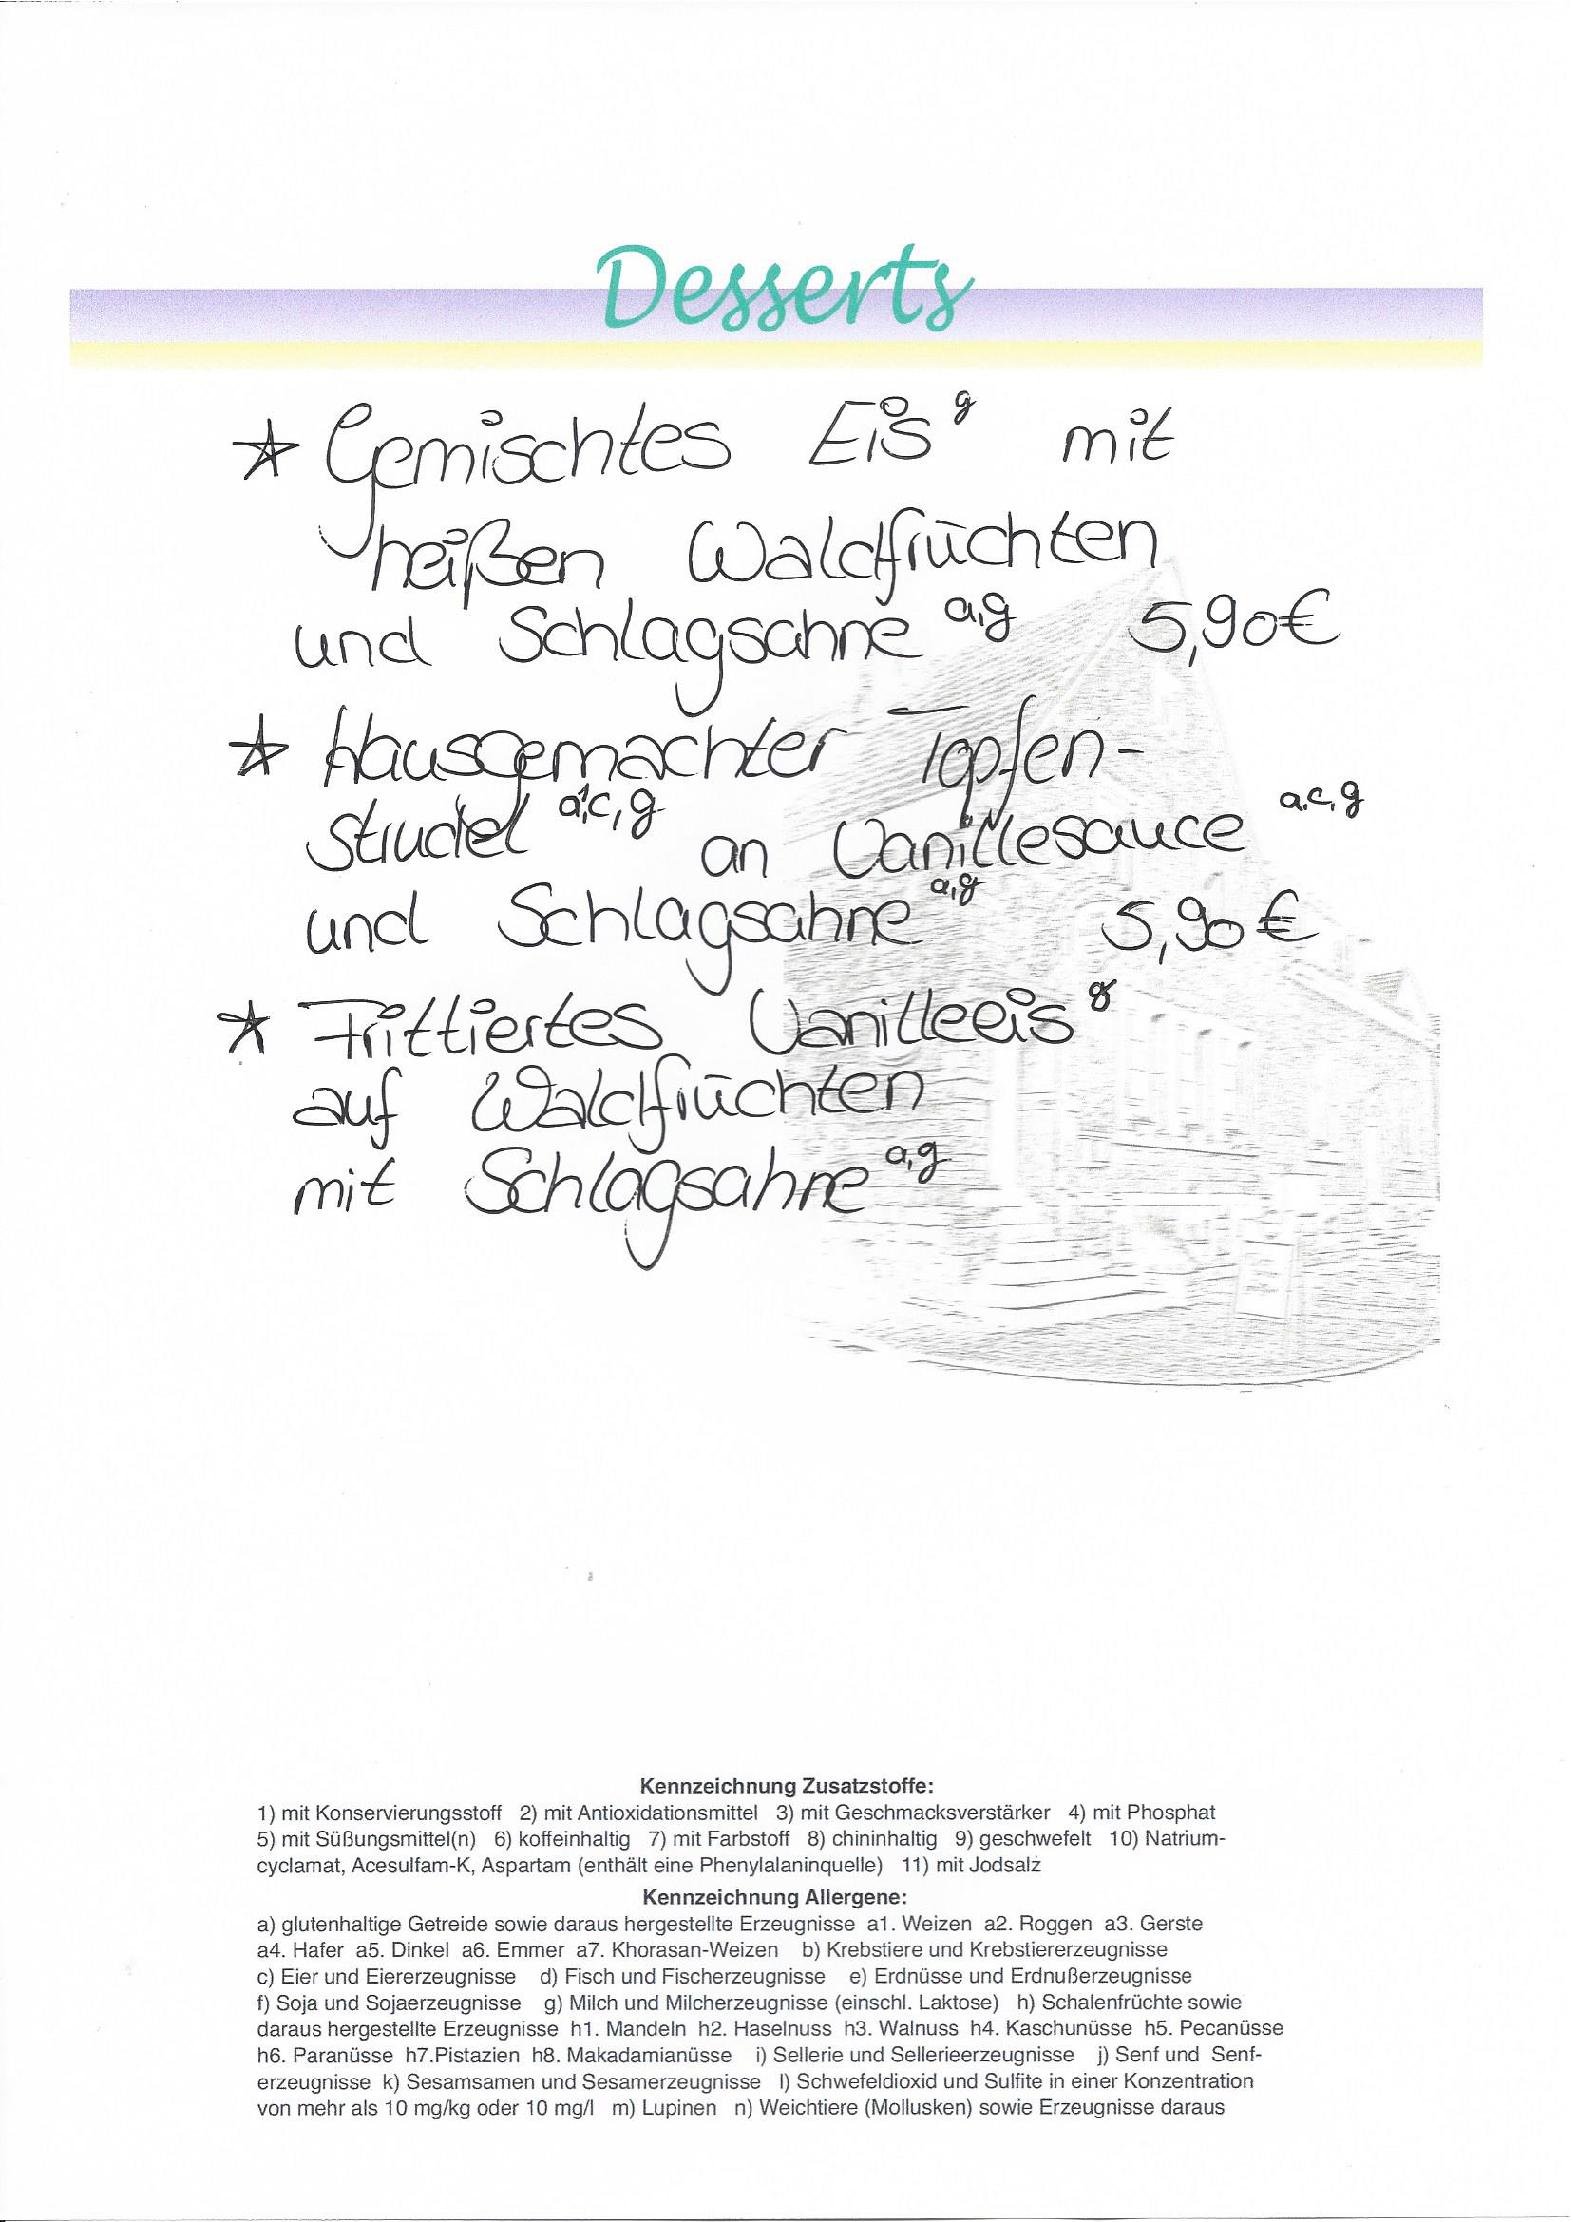 Desserts
☆ Gemischtes Eis g mit
heißen Waldfrüchten
und Schlagsahne a,g 5,90€
☆ Hausgemachter Topfen-
strudel a,c,g an Vanillesauce a,c,g
und Schlagsahne a,g 5,90€
☆ Frittiertes Vanilleeis g
auf Waldfrüchten
mit Schlagsahne a,g
Kennzeichnung Zusatzstoffe:
1) mit Konservierungsstoff 2) mit Antioxidationsmittel 3) mit Geschmacksverstärker 4) mit Phosphat
5) mit Süßungsmittel(n) 6) koffeinhaltig 7) mit Farbstoff 8) chininhaltig 9) geschwefelt 10) Natrium-
cyclamat, Acesulfam-K, Aspartam (enthält eine Phenylalaninquelle) 11) mit Jodsalz
Kennzeichnung Allergene:
a) glutenhaltige Getreide sowie daraus hergestellte Erzeugnisse a1. Weizen a2. Roggen a3. Gerste
a4. Hafer a5. Dinkel a6. Emmer a7. Khorasan-Weizen b) Krebstiere und Krebstiererzeugnisse
c) Eier und Eiererzeugnisse d) Fisch und Fischerzeugnisse e) Erdnüsse und Erdnußerzeugnisse
f) Soja und Sojaerzeugnisse g) Milch und Milcherzeugnisse (einschl. Laktose) h) Schalenfrüchte sowie
daraus hergestellte Erzeugnisse h1. Mandeln h2. Haselnuss h3. Walnuss h4. Kaschunüsse h5. Pecanüsse
h6. Paranüsse h7.Pistazien h8. Makadamianüsse i) Sellerie und Sellerieerzeugnisse j) Senf und Senf-
erzeugnisse k) Sesamsamen und Sesamerzeugnisse l) Schwefeldioxid und Sulfite in einer Konzentration
von mehr als 10 mg/kg oder 10 mg/l m) Lupinen n) Weichtiere (Mollusken) sowie Erzeugnisse daraus